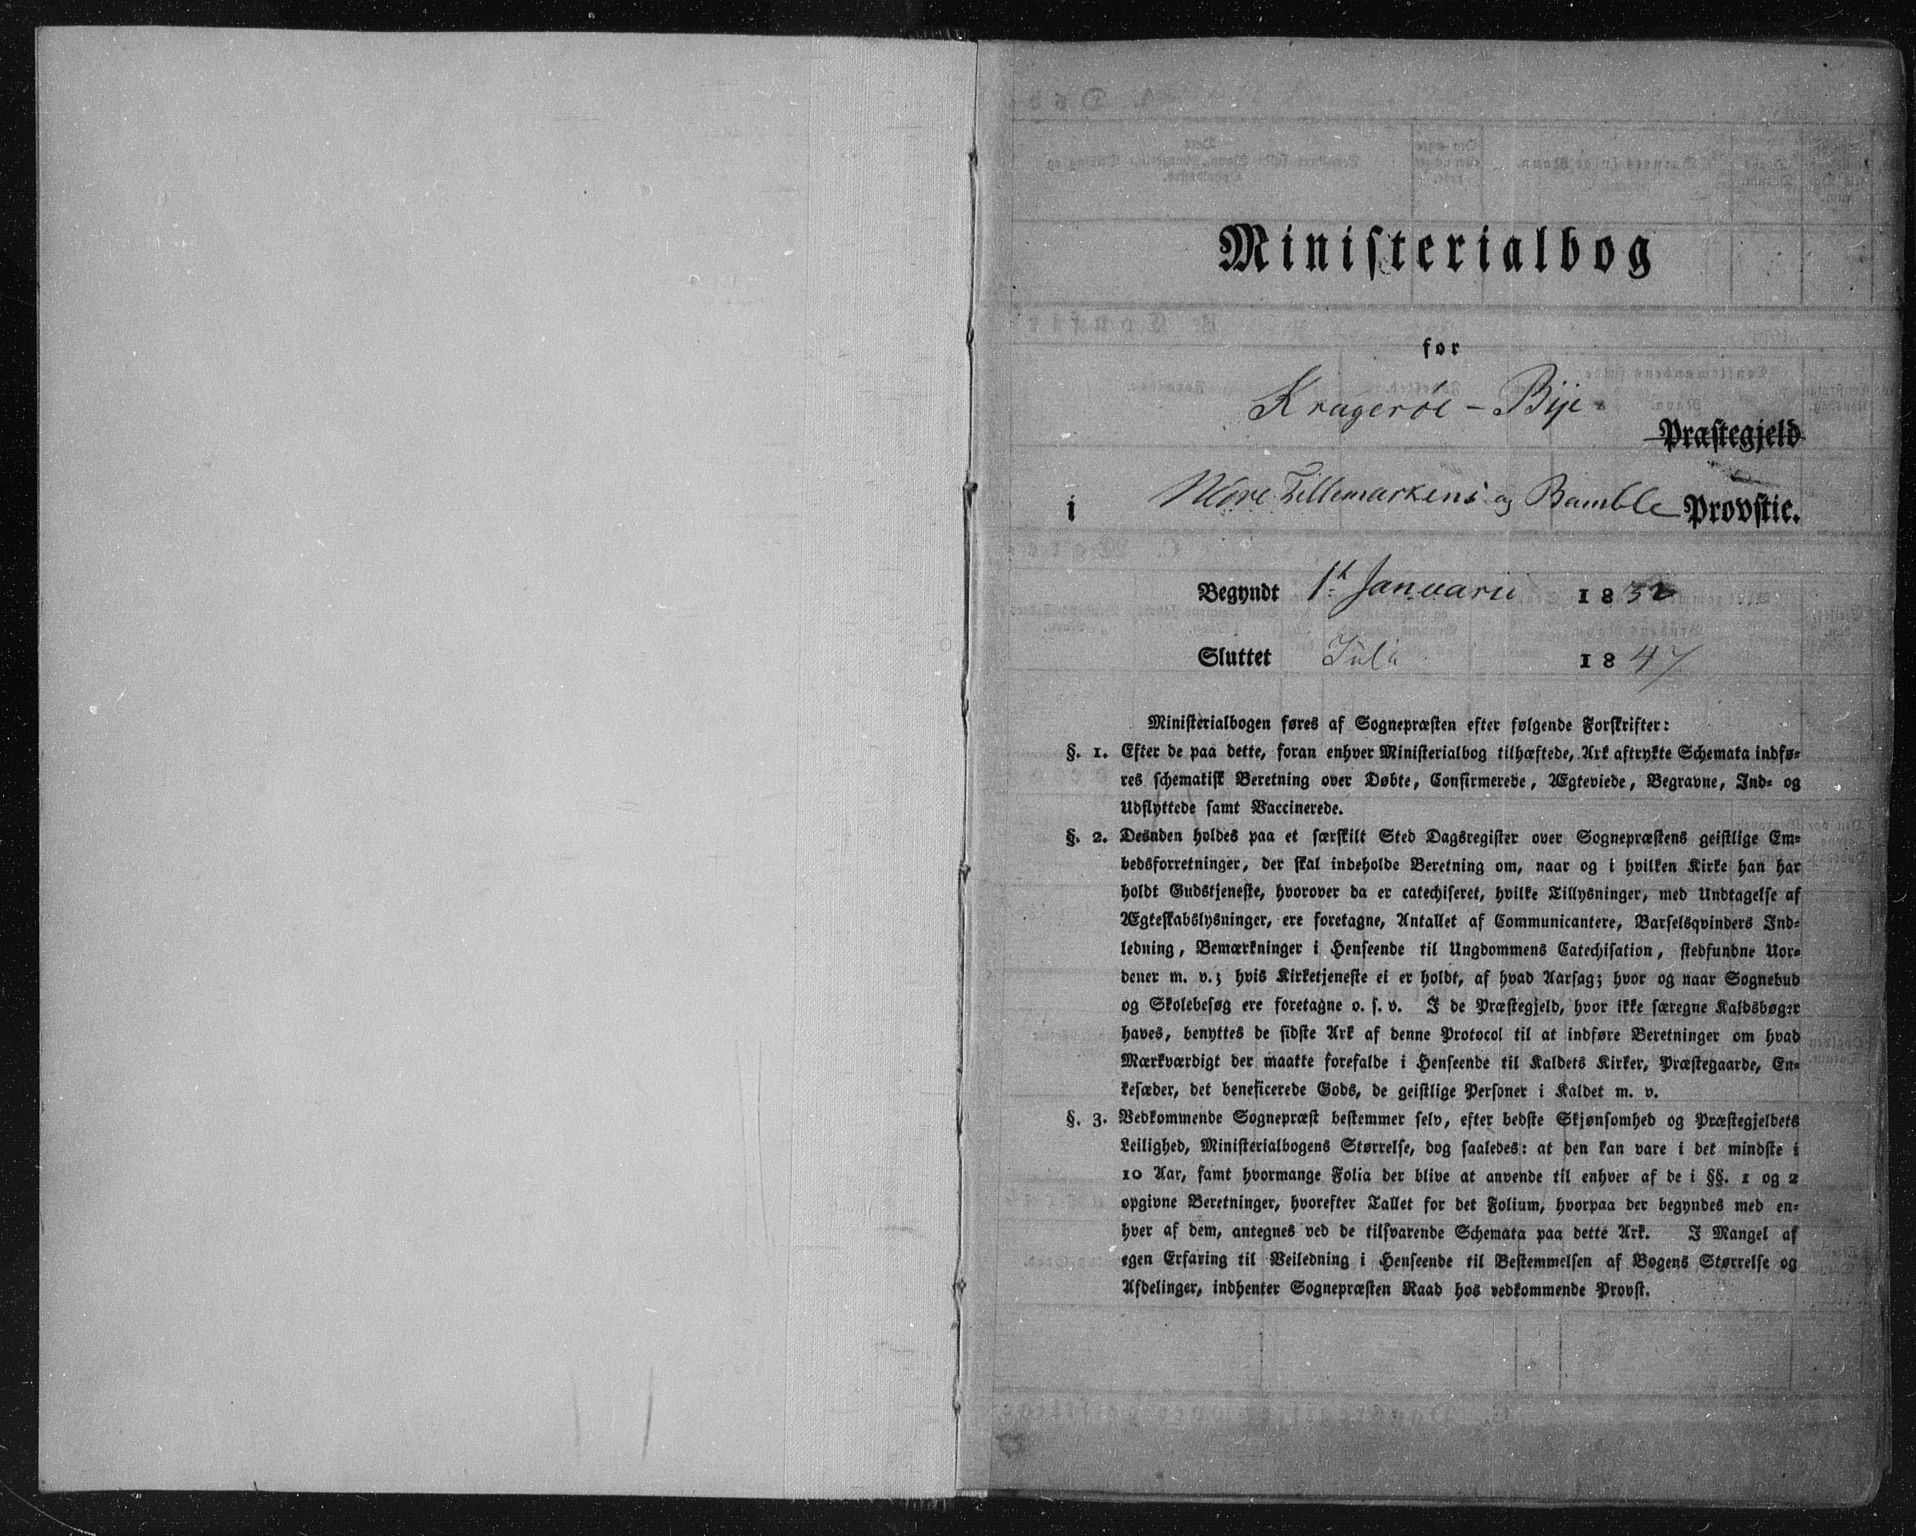 Ministerialbog
for
Krageröe - Bye-
Præstegjeld
i Nedre Tellemarkens og Bamble Provstie.
Begyndt 1te Januarii 1832
Sluttet Juli 1847
Ministerialbogen føres af Sognepræsten efter følgende Forskrifter:
§. 1. Efter de paa dette, foran enhver Ministerialbog tilhæftede, Ark aftrykte Schemata indfø-
res schematisk Beretning over Døbte, Confirmerede, Ægteviede, Begravne, Ind- og
Udflyttede samt Vaccinerede.
§. 2. Desuden holdes paa et særskilt Sted Dagsregister over Sognepræstens geistlige Em-
bedsforretninger, der skal indeholde Beretning om, naar og i hvilken Kirke han har
holdt Gudstjeneste, hvorover da er catechiseret, hvilke Tillysninger, med Undtagelse af
Ægteskabslysninger, ere foretagne, Antallet af Communicantere, Barselsqvinders Ind-
ledning, Bemærkninger i Henseende til Ungdommens Catechisation, stedfundne Uor-
dener m. v.; hvis Kirketjeneste ei er holdt, af hvad Aarsag; hvor og naar Sognebud
og Skolebesøg ere foretagne o. s. v. I de Præstegjeld, hvor ikke særegne Kaldsbøger
haves, benyttes de sidste Ark af denne Protocol til at indføre Beretninger om hvad
Mærkværdigt der maatte forefalde i Henseende til Kaldets Kirker, Præstegaarde, En-
kesæder, det beneficerede Gods, de geistlige Personer i Kaldet m. v.
§. 3. Vedkommende Sognepræst bestemmer selv, efter bedste Skjønsomhed og Præstegjeldets
Leilighed, Ministerialbogens Størrelse, dog saaledes: at den kan vare i det mindste i
10 Aar, samt hvormange Folia der blive at anvende til enhver af de i §§. 1 og 2
opgivne Beretninger, hvorefter Tallet for det Folium, hvorpaa der begyndes med en-
hver af dem, antegnes ved de tilsvarende Schemata paa dette Ark. I Mangel af
egen Erfaring til Veiledning i Henseende til Bestemmelsen af Bogens Størrelse og
Afdelinger, indhenter Sognepræsten Raad hos vedkommende Provst.